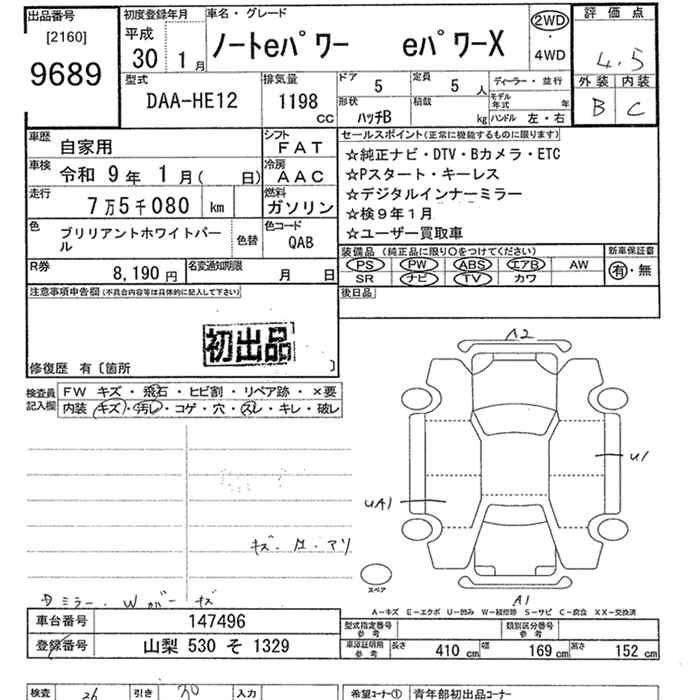 出品番号
[2160]
9689
初度登録年月
平成
30 1月
車名・グレード
ノートeパワー eパワーX
2WD
・
4WD
評価点
4.5
外装 内装
B C
型式
DAA-HE12
排気量
1198 CC
ドア
5
定員
5 人
形状
ハッチB
積載
kg
ディーラー・並行
モデル年式 年
ハンドル 左・右
車歴
自家用
シフト
FAT
車検
令和 9年 1月( 日)
冷房
AAC
走行
7万5千080 km
燃料
ガソリン
色
ブリリアントホワイトパール
色替
色コード
QAB
R券
8,190 円
名変通知期限
月 日
セールスポイント(正常に機能するものに限ります)
☆純正ナビ・DTV・Bカメラ・ETC
☆Pスタート・キーレス
☆デジタルインナーミラー
☆検9年1月
☆ユーザー買取車
装備品(純正品に限り○をつけてください)
PS PW ABS エアB AW
SR ナビ TV カワ
新車保証書
有・無
後日品
注意事項申告欄(不具合内容等は具体的に記入して下さい)
初出品
修復歴 有〔箇所 〕
検査員記入欄
FW キズ・飛石・ヒビ割・リペア跡・×要
内装 キズ・汚レ・コゲ・穴・スレ・キレ・破レ
A2
U1
UA1
A1
スペア
ミラー・Wカバー キズ
A-キズ E-エクボ U-凹み W-補修跡 S-サビ C-腐食 XX-交換済
車台番号
147496
登録番号
山梨 530 そ 1329
型式指定番号
参考
類別区分番号
参考
車庫証明用
参考
長さ 410 cm 幅 169 cm 高さ 152 cm
検査
引き
入力
希望コーナー① 青年部初出品コーナー